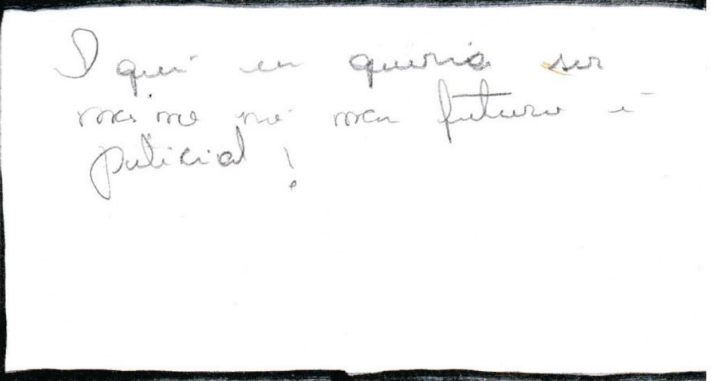 O que eu queria ser
mesmo no meu futuro é
policial!